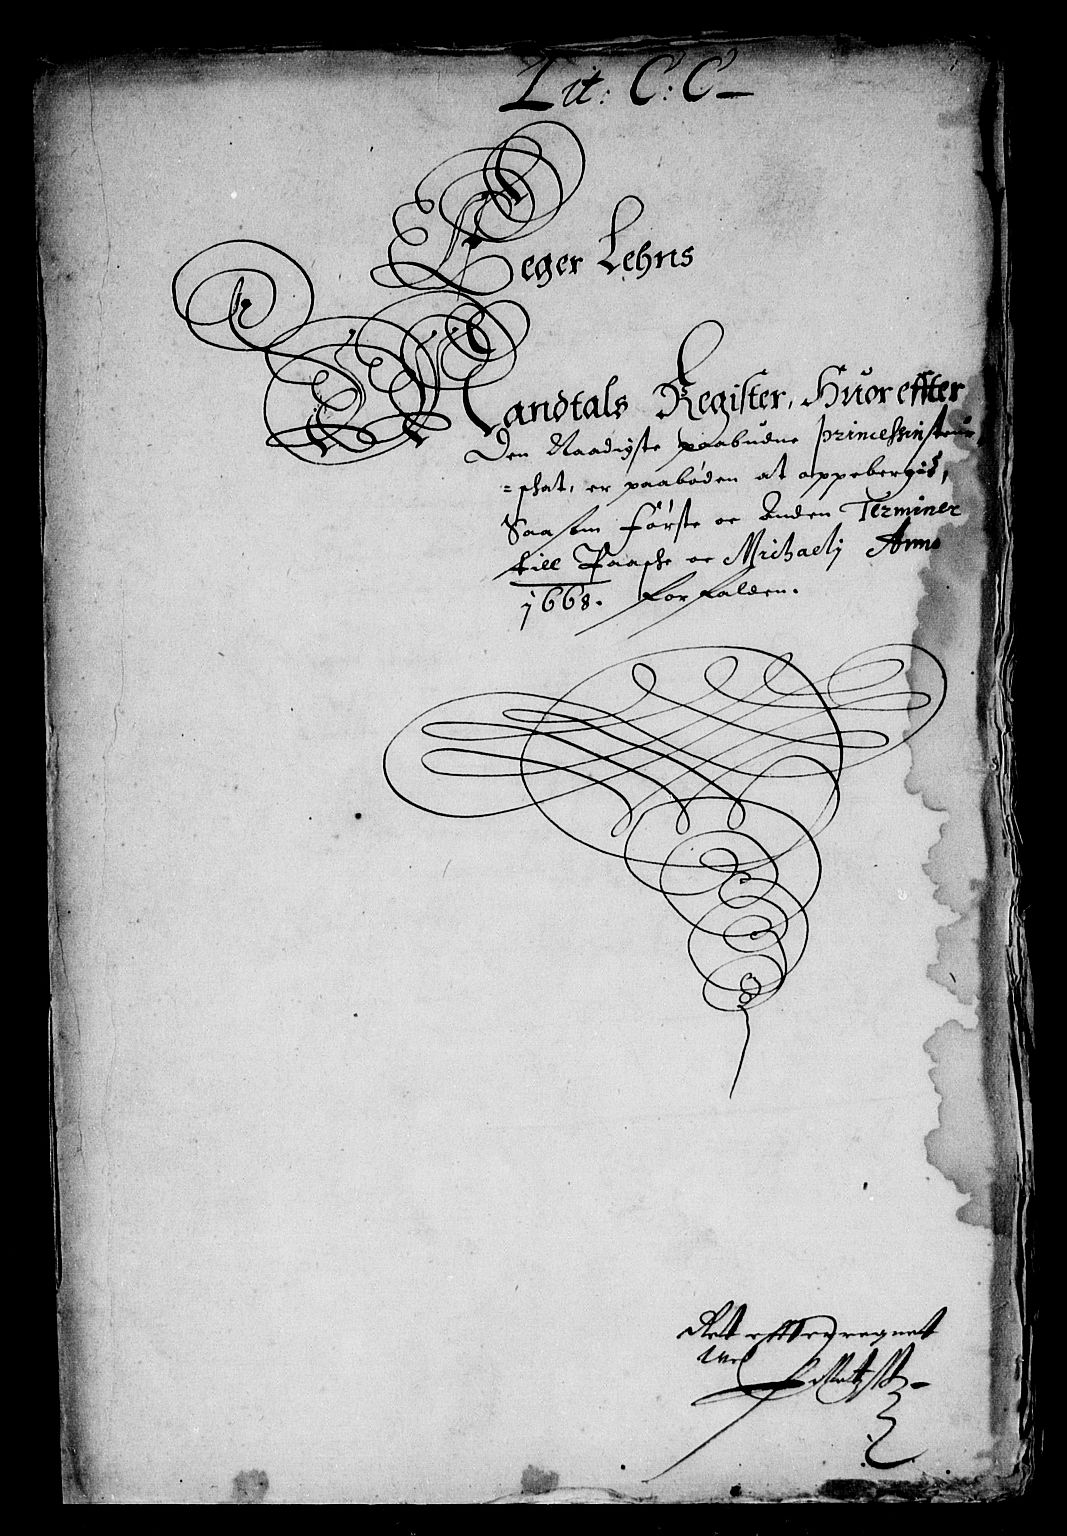 Lit: C: C
Leger Lehns
Mandtals Register, Huor effter
Den Naadigste paabudne princessinsteur
=schat, er paabøden at oppebergis,
Saasom første oc Anden Terminer
till Paasche oc Michaelj Anno
1668. forfalden.
Ret effterregnet